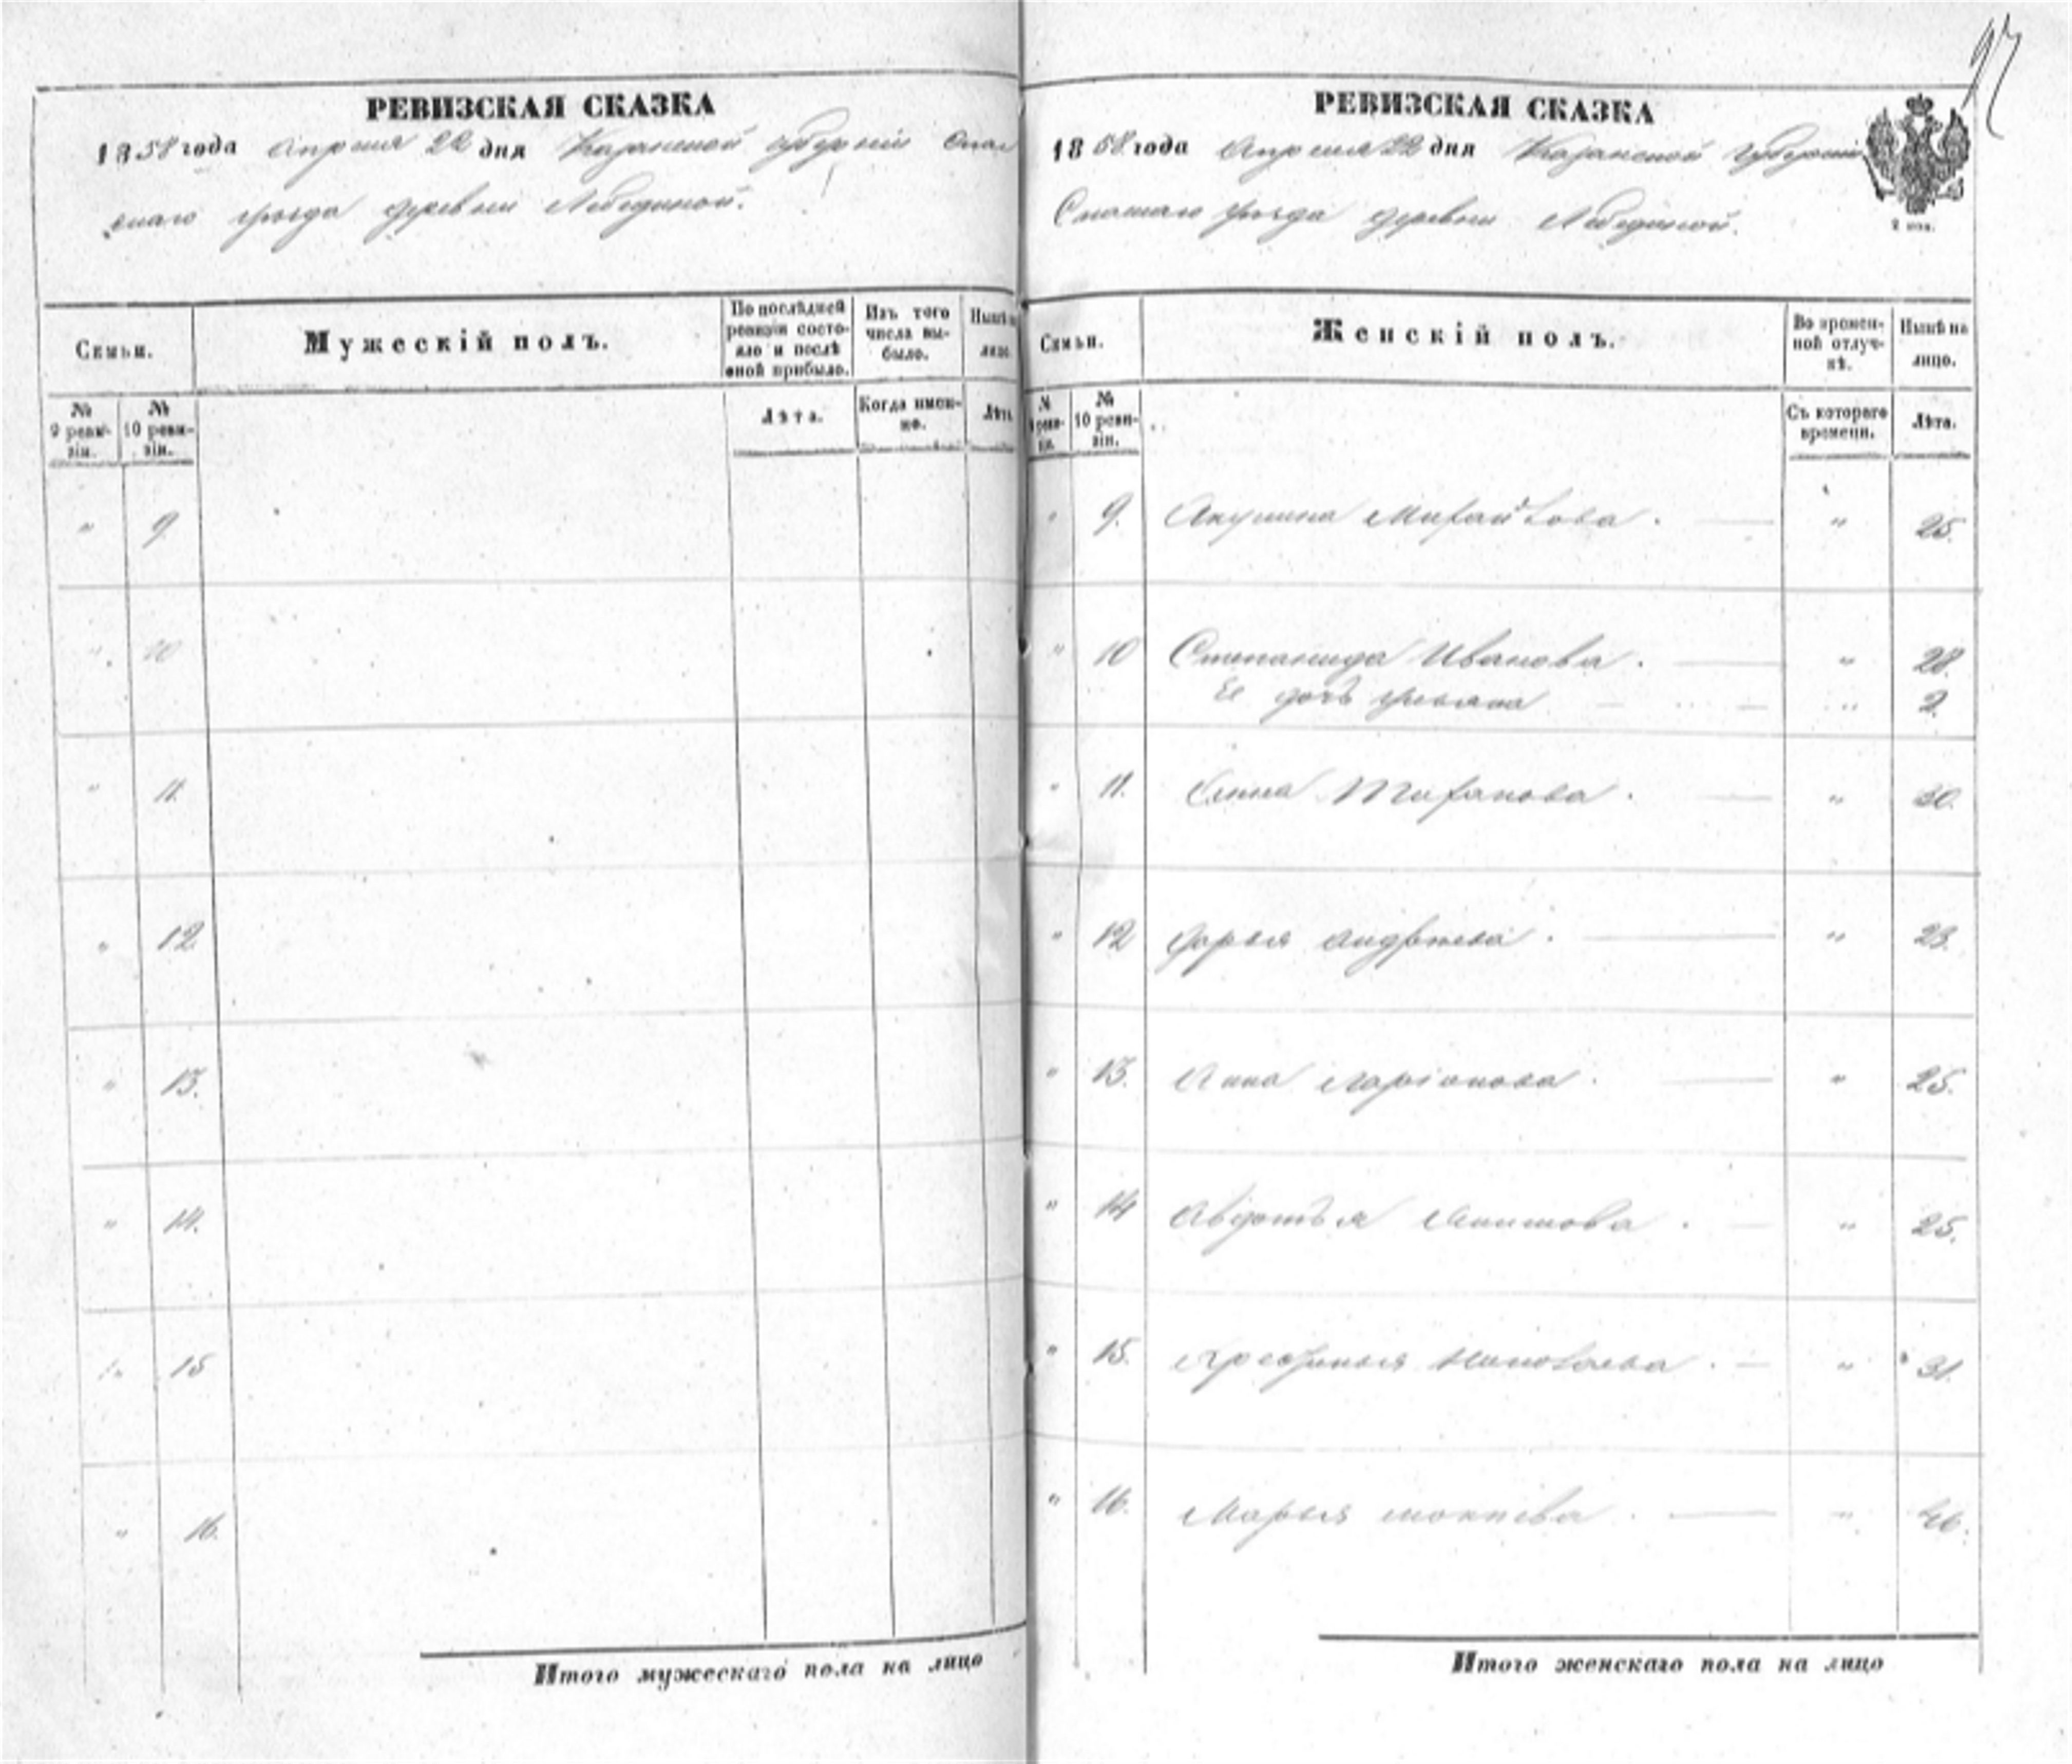 97
РЕВИЗСКАЯ СКАЗКА
1858 года Апреля 22 дня Казанской губерніи Спас
скаго уѣзда деревни Лебединой.
Семьи.
Мужескій полъ.
По послѣдней ревизіи состояло и послѣ оной прибыло.
Изъ того числа выбыло.
Нынѣ на лицо
№ 9 ревизіи.
№ 10 ревизіи.
Лѣта.
Когда именно.
Лѣта
" 9
" 10
" 11.
" 12
" 13.
" 14.
" 15
" 16.
Итого мужескаго пола на лицо
РЕВИЗСКАЯ СКАЗКА
1858 года Апреля 22 дня Казанской губерніи
Спаскаго уѣзда деревни Лебединой.
2 коп.
Семьи.
Женскій полъ.
Во временной отлучкѣ.
Нынѣ на лицо.
№ 9 ревизіи.
№ 10 ревизіи.
Съ котораго времени.
Лѣта.
" 9. Акулина Михайлова. — " 25.
" 10 Степанида Иванова. — " 28.
Ее дочь Ульяна — " 2.
" 11. Анна — " 30.
" 12 Дарья Андреева. — " 23.
" 13. Анна Ларіонова. — " 25.
" 14 Авдотья Акимова. — " 25.
" 15. Николаева. — " 31.
" 16. Марья — "
Итого женскаго пола на лицо